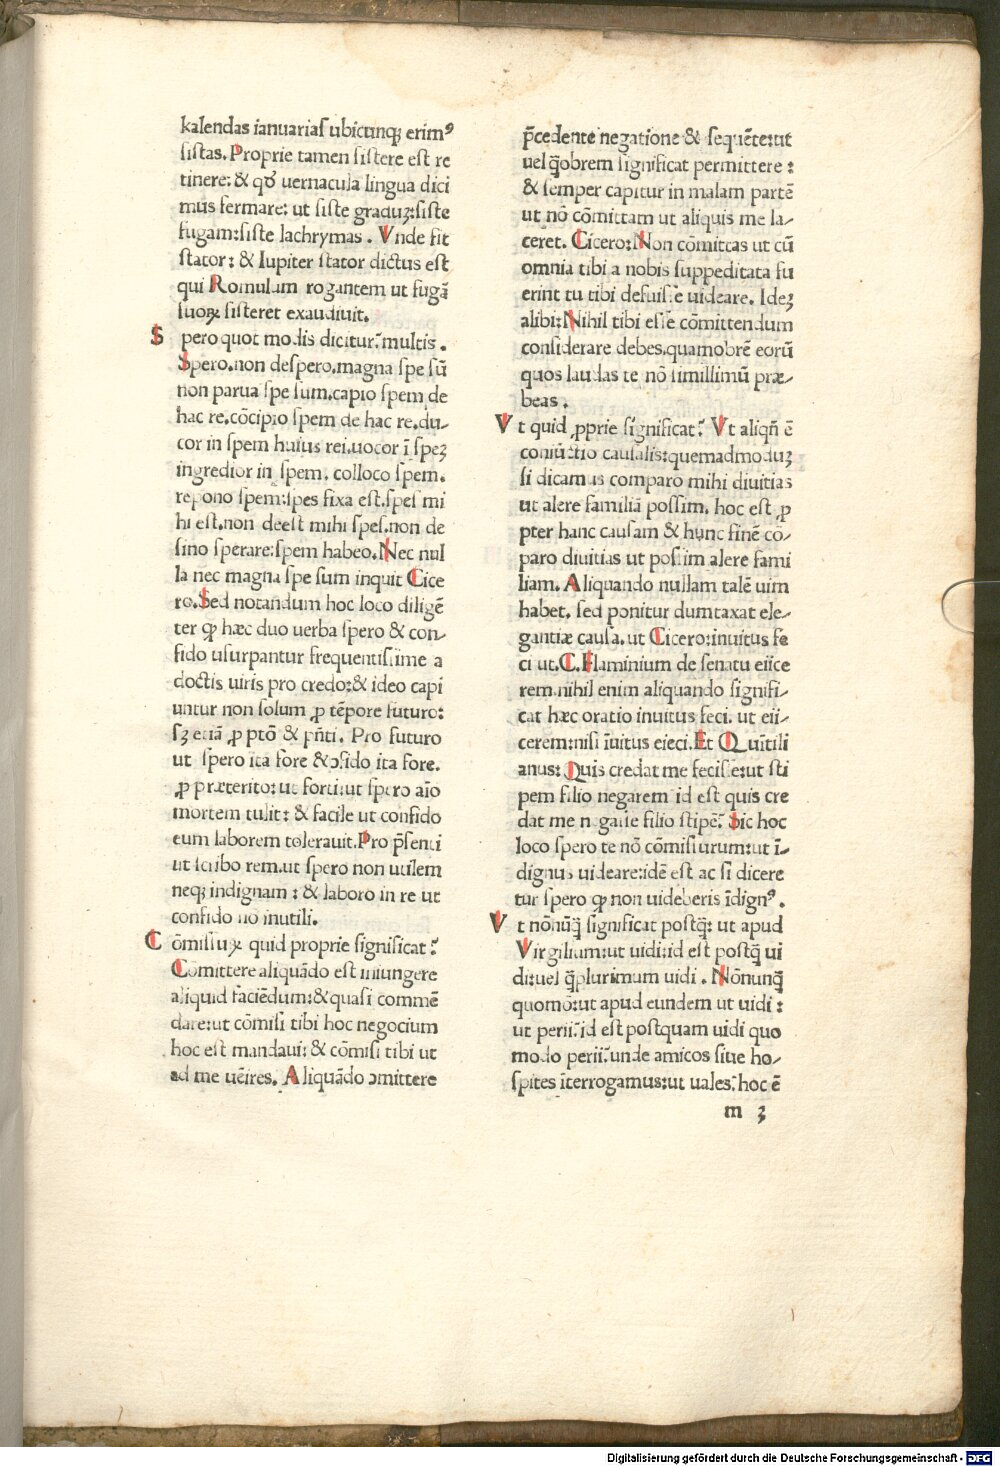 kalendas ianuariaſ ubicūnq; erim⁹
ſiſtas. Proprie tamen ſiſtere eſt re
tinere: & qđ uernacula lingua dici
mus fermare: ut ſiſte graduꝫ: ſiſte
fugam: ſiſte lachrymas. Vnde fit
ſtator: & Iupiter ſtator dictus eſt
qui Romulum rogantem ut fugā
ſuoꝝ ſiſteret exaudiuit.
Spero quot modis dicitur? multis.
Spero. non deſpero. magna ſpe ſū
non parua ſpe ſum. capio ſpem de
hac re. cōcipio ſpem de hac re. du-
cor in ſpem huius rei. uocor ī ſpeꝫ
ingredior in ſpem. colloco ſpem.
repono ſpem: ſpes fixa eſt. ſpeſ mi
hi eſt. non deeſt mihi ſpeſ. non de
ſino ſperare: ſpem habeo. Nec nul
la nec magna ſpe ſum inquit Cice
ro. Sed notandum hoc loco diligē
ter ꝙ hæc duo uerba ſpero & con-
fido uſurpantur frequentiſſime a
doctis uiris pro credo: & ideo capi
untur non ſolum ꝓ tēpore futuro:
ſꝫ etiā ꝓ ptō & pñti. Pro futuro
ut ſpero ita fore & ɔfido ita fore.
ꝓ præterito: ut fortiſ: ut ſpero aīo
mortem tulit: & facile ut confido
eum laborem tolerauit. Pro p̄ſenti
ut ſcribo rem. ut ſpero non utilem
neq; indignam: & laboro in re ut
confido nō inutili.
Cōmiſſuꝝ quid proprie ſignificat?
Comittere aliquādo eſt iniungere
aliquid faciēdum: & quaſi commē
dare: ut cōmiſi tibi hoc negocium
hoc eſt mandaui: & cōmiſi tibi ut
ad me uēires. Aliquādo ɔmittere
p̄cedente negatione & ſequēte: ut
uel q̄obrem ſignificat permittere:
& ſemper capitur in malam partē
ut nō cōmittam ut aliquis me la-
ceret. Cicero: Non cōmittas ut cū
omnia tibi a nobis ſuppeditata fu
erint tu tibi defuiſſe uideare. Ideꝫ
alibi: Nihil tibi eſſe cōmittendum
conſiderare debes. quamobrē eorū
quos laudas te nō ſimillimū præ-
beas.
Vt quid ꝓprie ſignificat? Vt aliqñ ē
coniūctio cauſalis: quemadmoduꝫ
ſi dicamus comparo mihi diuitias
ut alere familiā poſſim. hoc eſt ꝓ
pter hanc cauſam & hunc finē cō-
paro diuitias ut poſſim alere fami
liam. Aliquando nullam talē uim
habet. ſed ponitur dumtaxat ele-
gantiæ cauſa. ut Cicero: inuitus fe
ci ut. C. Flaminium de ſenatu eiice
rem. nihil enim aliquando ſignifi-
cat hæc oratio inuitus feci. ut eii-
cerem: niſi īuitus eieci. Et Quītili
anus: Quis credat me feciſſe: ut ſti
pem filio negarem id eſt quis cre
dat me negaſſe filio ſtipē? Sic hoc
loco ſpero te nō cōmiſſurum: ut ī-
dignus uideare: idē eſt ac ſi dicere
tur ſpero ꝙ non uideberis īdign⁹.
Vt nōnūq̄ ſignificat poſtq̄: ut apud
Virgilium: ut uidi: id eſt poſtq̄ ui
di: uel q̄plurimum uidi. Nōnunq̄
quomō: ut apud eundem ut uidi:
ut perii: id eſt poſtquam uidi quo
modo perii: unde amicos ſiue ho-
ſpites īterrogamus: ut uales: hoc ē
m 3
Digitalisierung gefördert durch die Deutsche Forschungsgemeinschaft - DFG